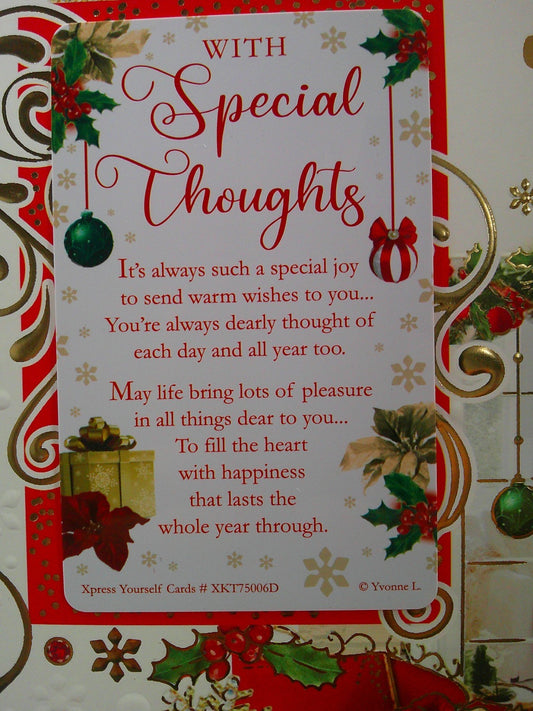 WITH
Special
Thoughts
It's always such a special joy
to send warm wishes to you...
You're always dearly thought of
each day and all year too.
May life bring lots of pleasure
in all things dear to you...
To fill the heart
with happiness
that lasts the
whole year through.
Xpress Yourself Cards # XKT75006D © Yvonne L.